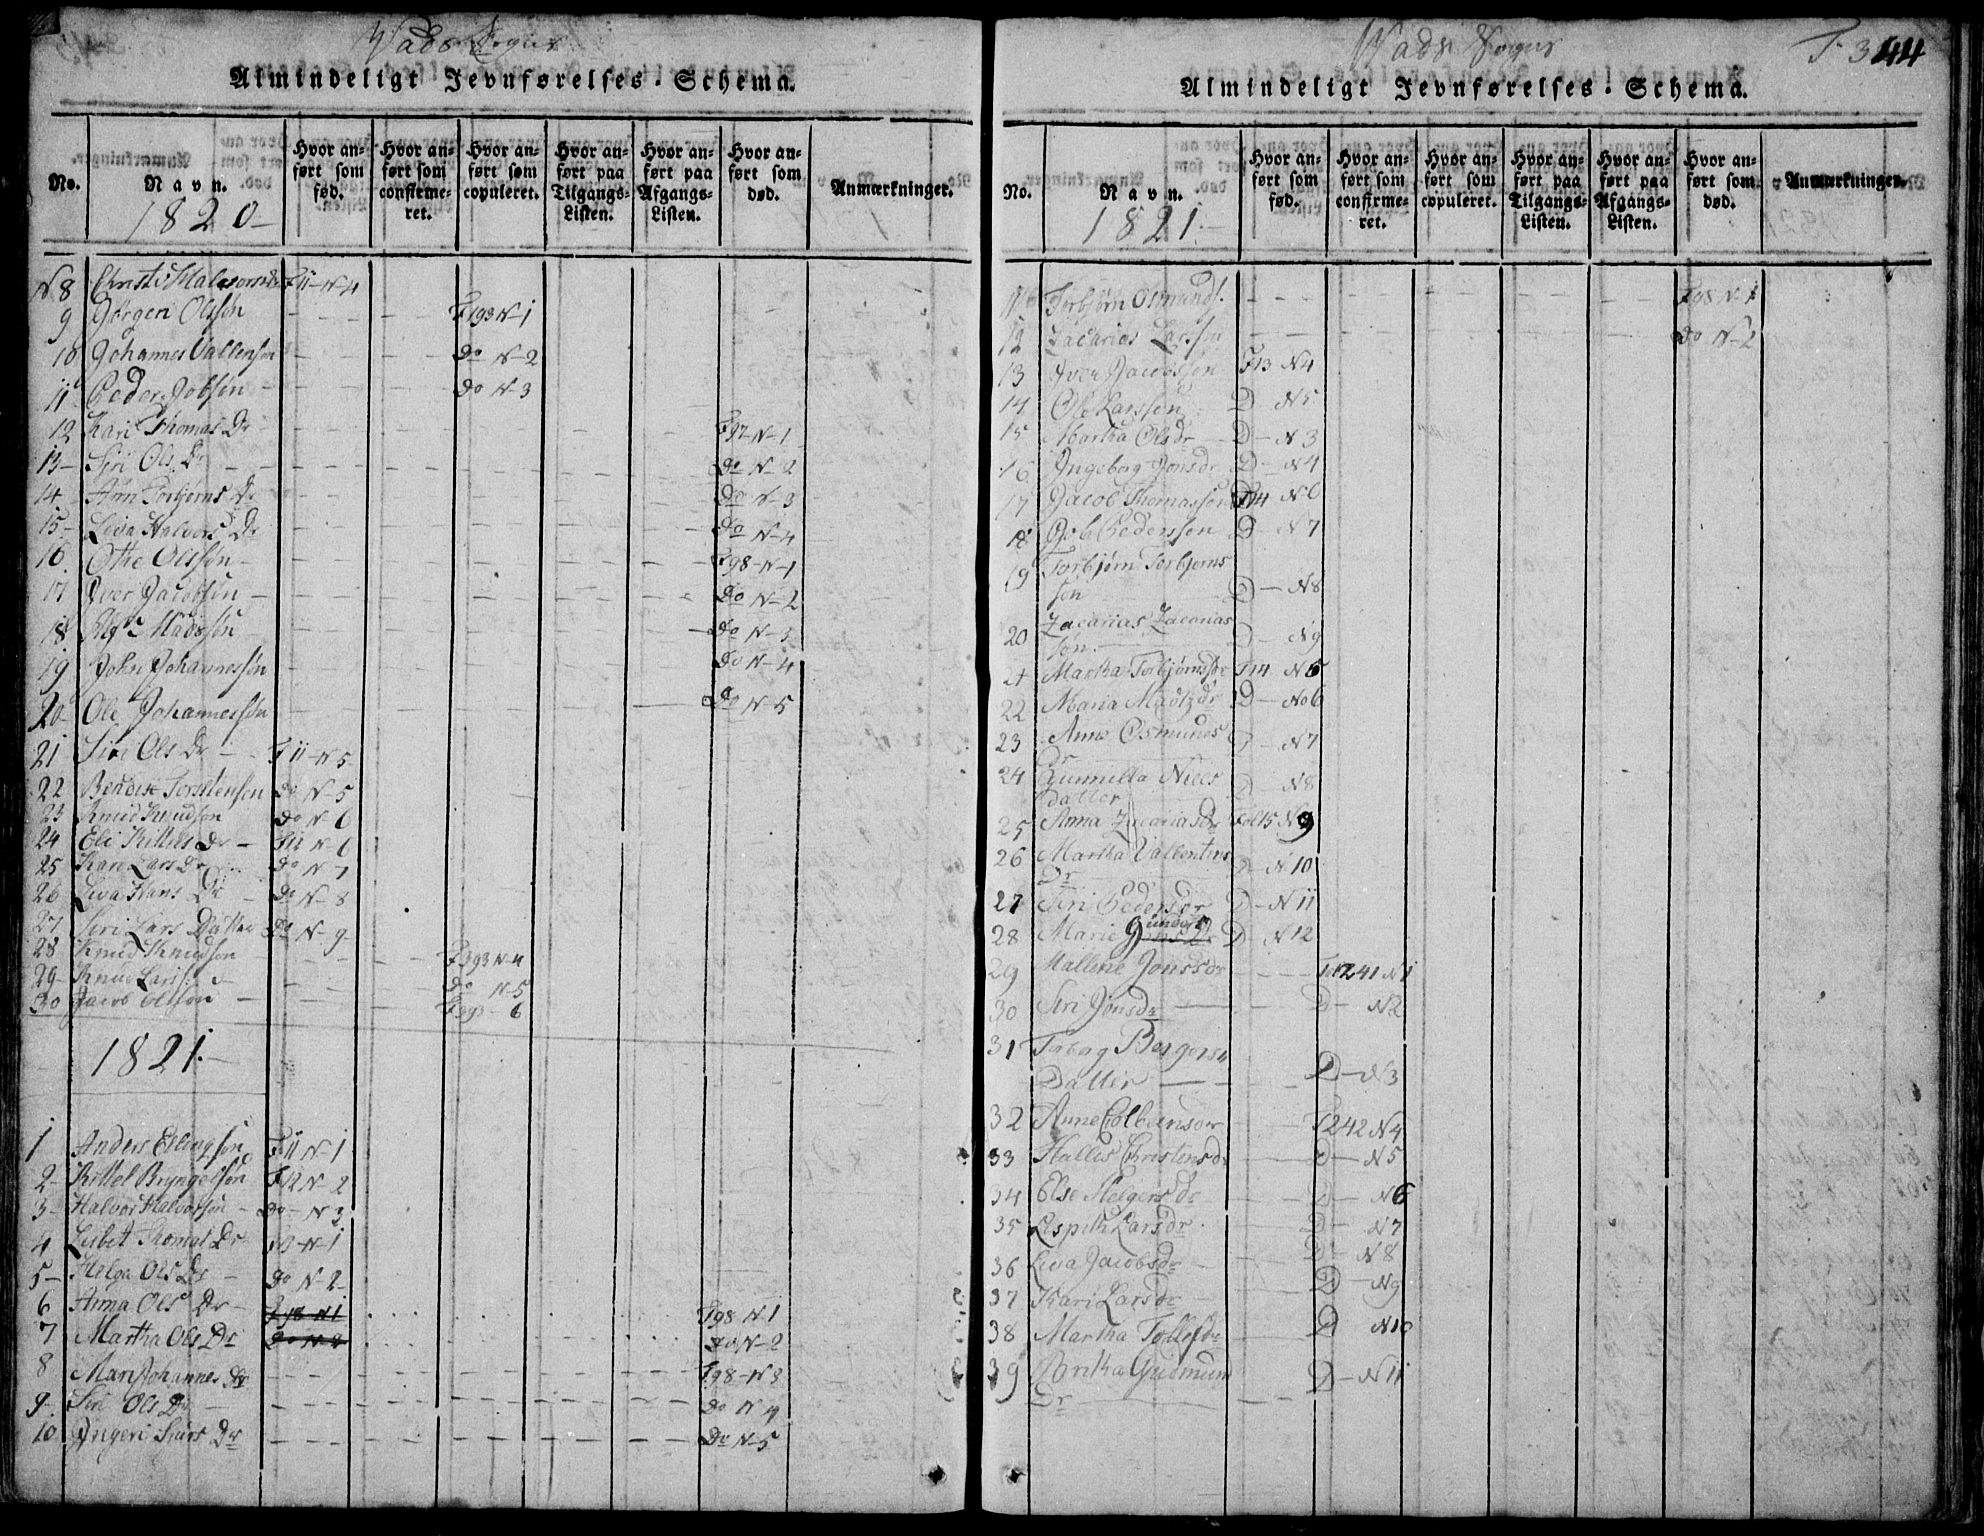 Wads Sogn
Almindeligt Jevnførelses-Schema.
No. Navn. Hvor anført som fød. Hvor anført som confirmeret. Hvor anført søm copuleret. Hvor anført paa Tilgangs-Listen. Hvor anført paa Afgangs-Listen. Hvor anført som død. Anmærkninger.
1820
N 8 F11-N4
9 Gørgen Olssøn F193 N-1
10 Johannes Vallensøn do N-2
11 Peder Jobsøn do N-3
12 Kari Thomas Dr F97-N-1
13- Siri Ols Dr do N-2
14 Ann Torbjørns Dr do N-3
15- Liva Halvors Dr do N-4
16 Othe Olssøn F98-N-1
17 Iver Jacobsøn do N-2
18 Madssøn do N-3
19 John Johannessøn do N-4
20- Ole Johannessøn do N-5
21 Siri Ols Dr F11-N5
22 Bendix Torstensøn do N-5
23 Knud Knudsøn do N-6
24 Eli Kittils Dr F12 N-6
25 Kari Lars Dr do N-7
26 Liva Hans Dr do N-8
27 Siri Lars Datter do N-9
28 Knud Knudsøn F393 N-4
29- Knud Larss: do N-5
30 Jacob Olssøn F393- 6
1821.
1 Anders Ellingsøn F11 N-1
2- Kittel Bryngelsøn F12 N-2
3- Halvor Halvorsøn do- N3
4 Lisbet Thomas Dr N-1
5- Helga Ols Dr do N-2
6 Anna Ols Dr F98 N1 F98 N1
7 Martha Ols Dr do N-2
8 Mari Johannes Dr F98-N3
9- Siri Ols Dr do N4
10 Ingeri Siurs Dr Do N-5
Wads Sogn
F. 344
Almindeligt Jevnførelses-Schema.
No. Navn. Hvor anført som fød. Hvor anført som confirmeret. Hvor anført som copuleret. Hvor anført paa Tilgangs-Listen. Hvor anført paa Afgangs-Listen. Hvor anført som død. Anmærkninger.
1821.
11 Torbjørn Osmunds. F98 N-1
12 Zacarias Larssøn do N-2
13 Iver Jacobssøn F13 N4
14 Ole Larssøn D N5
15 Martha Olsdr D- N3
16 Ingeborg Jonsdr D- N4
17 Jacob Thomassøn F14 N6
18 Job Pederssøn D- N7
19 Torbjørn Torbjørns
søn D- N8
20 Zacarias Zacarias
søn. D- N9
21 Martha Torbjørnsdr F14 N5
22 Maria Madtzdr D- No6
23 Anne Osmunds
Dr D- N7
24 Gunnilla Niels
datter D N8
25 Anna Zacariasdr Fol15 N9
26 Martha Vallentins
Dr D- N10
27 Siri Pedersdr D-N11
28 Marie Gunders Dr D- N12
29 Mallene Jonssdr Fol241 N1
30 Siri Jonsdr D- N2
31 Torborg Borgers
Datter D-N3
32 Anne Colbeensdr F242 N4
33 Hallis Christensdr D- N5
34 Else Helgers dr D- N6
35 Lispith Larsdr. D- N7
36 Liva Jacobsdr D- N8
37 Kari Larsdr D N9
38 Martha Tollefsdr D N10
39 Gudmund
Dr D-N11